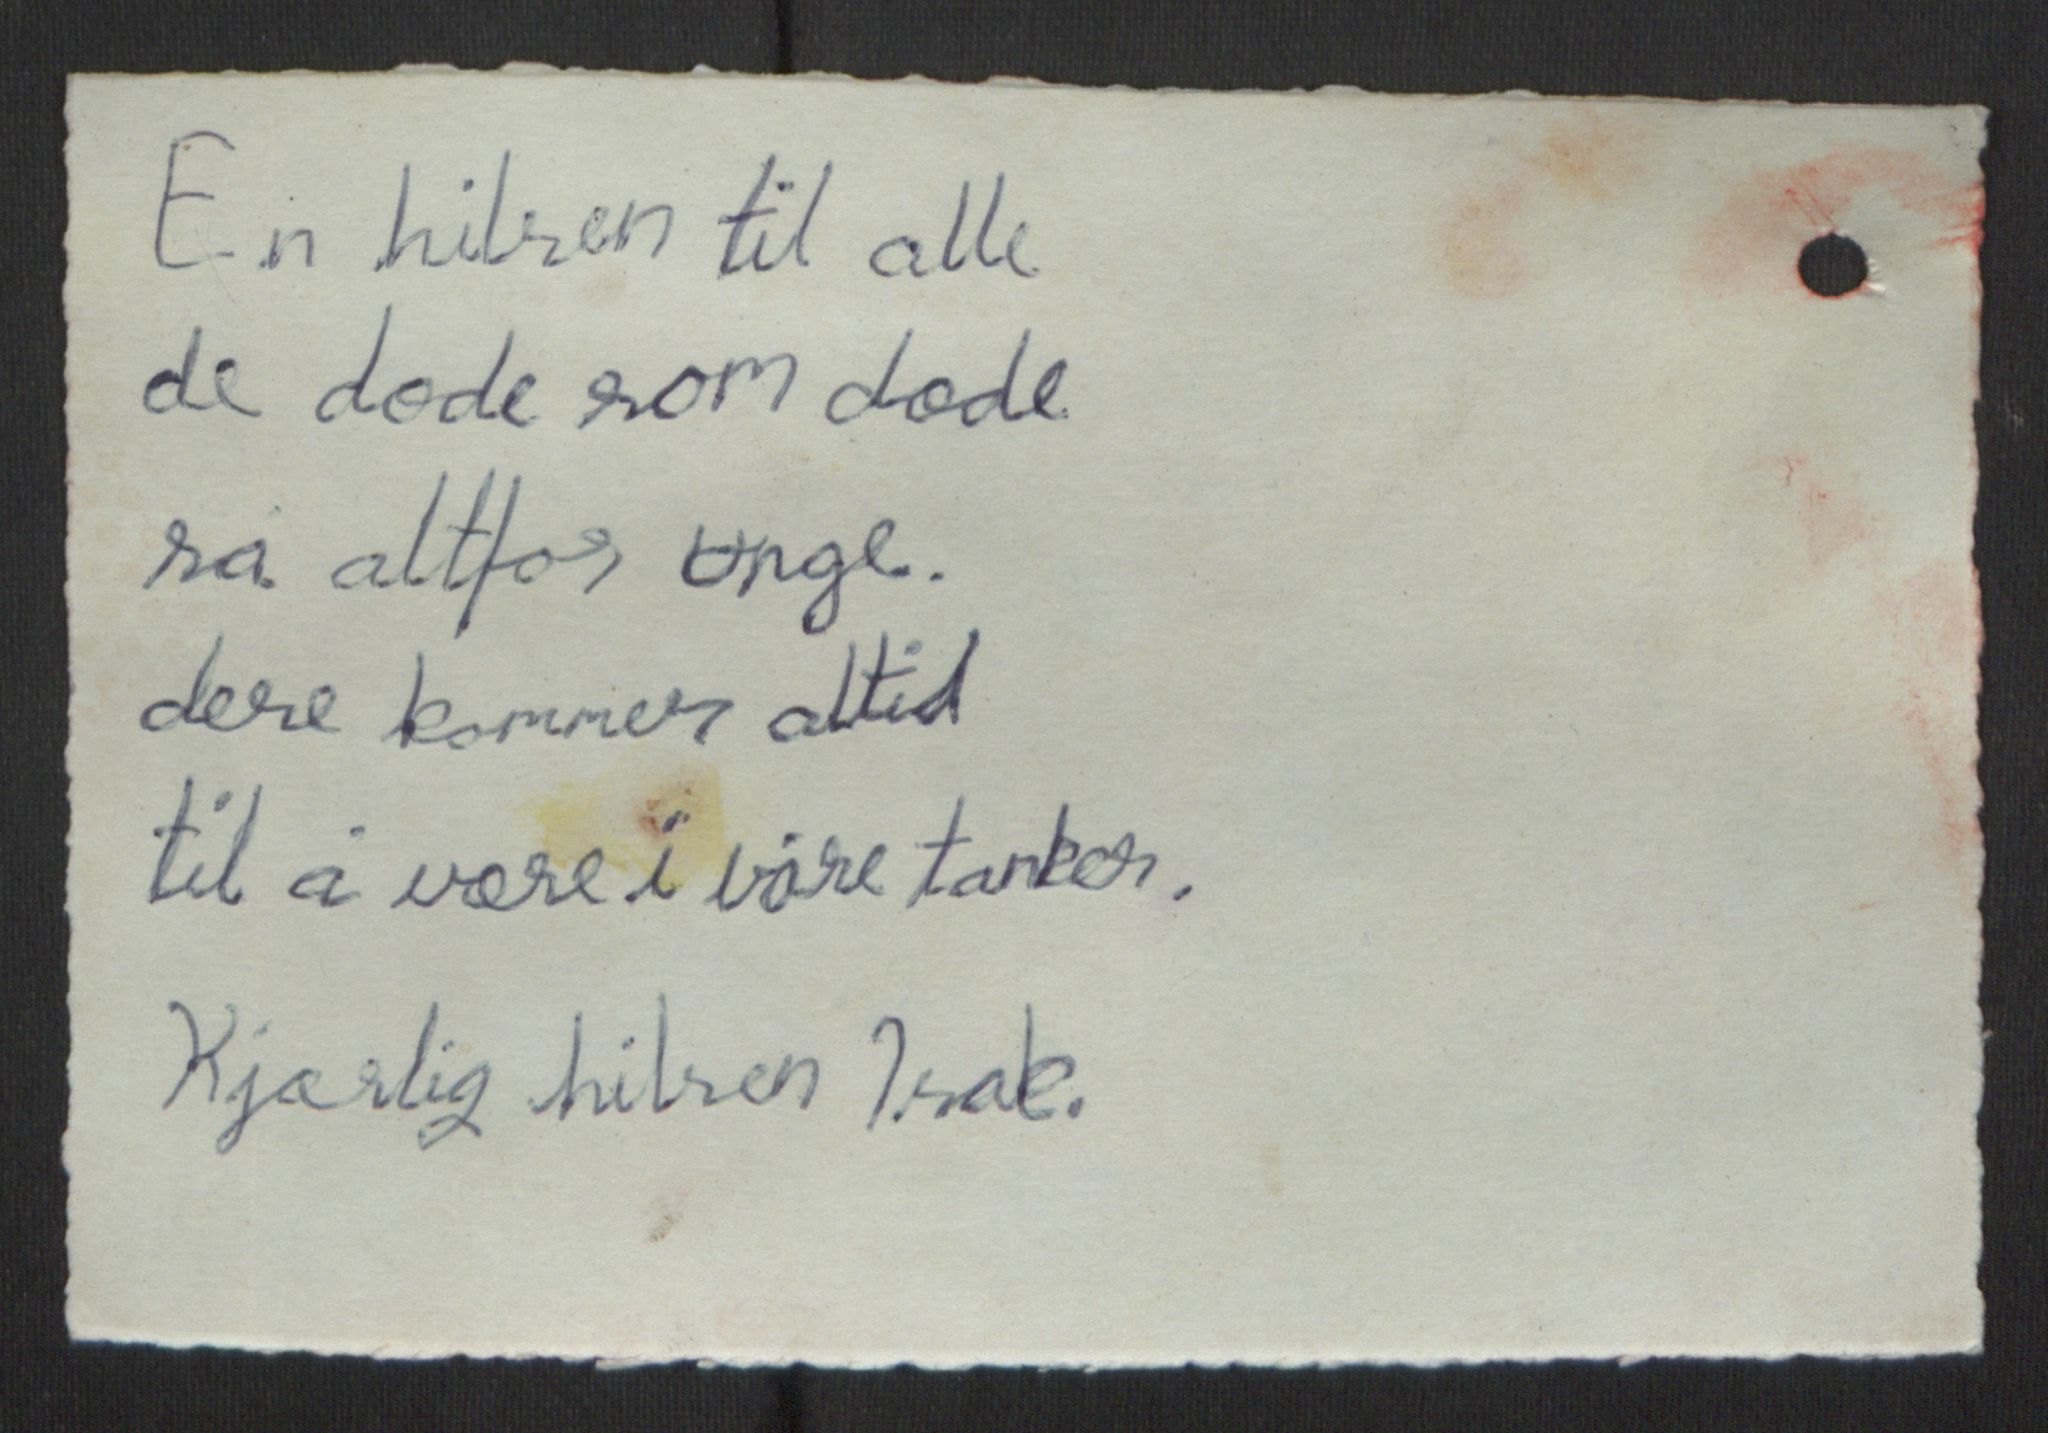 En hilsen til alle
de døde som døde
så altfor unge.
dere kommer altid
til å være i våre tanker.
Kjærlig hilsen Isak.